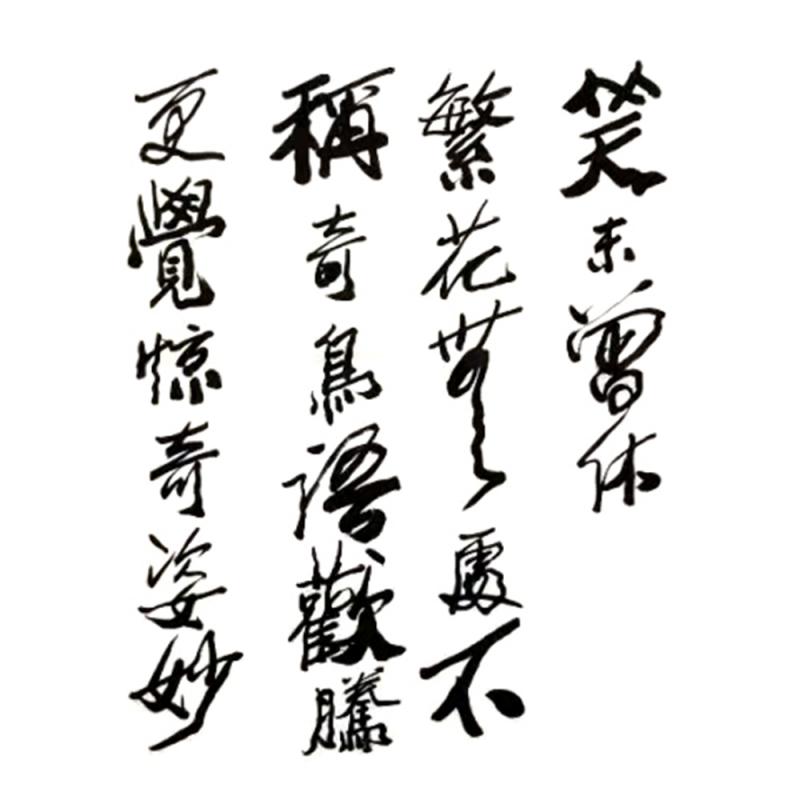 笑未曾休
繁花無處不
稱奇鳥語歡騰
更覺惊奇姿妙